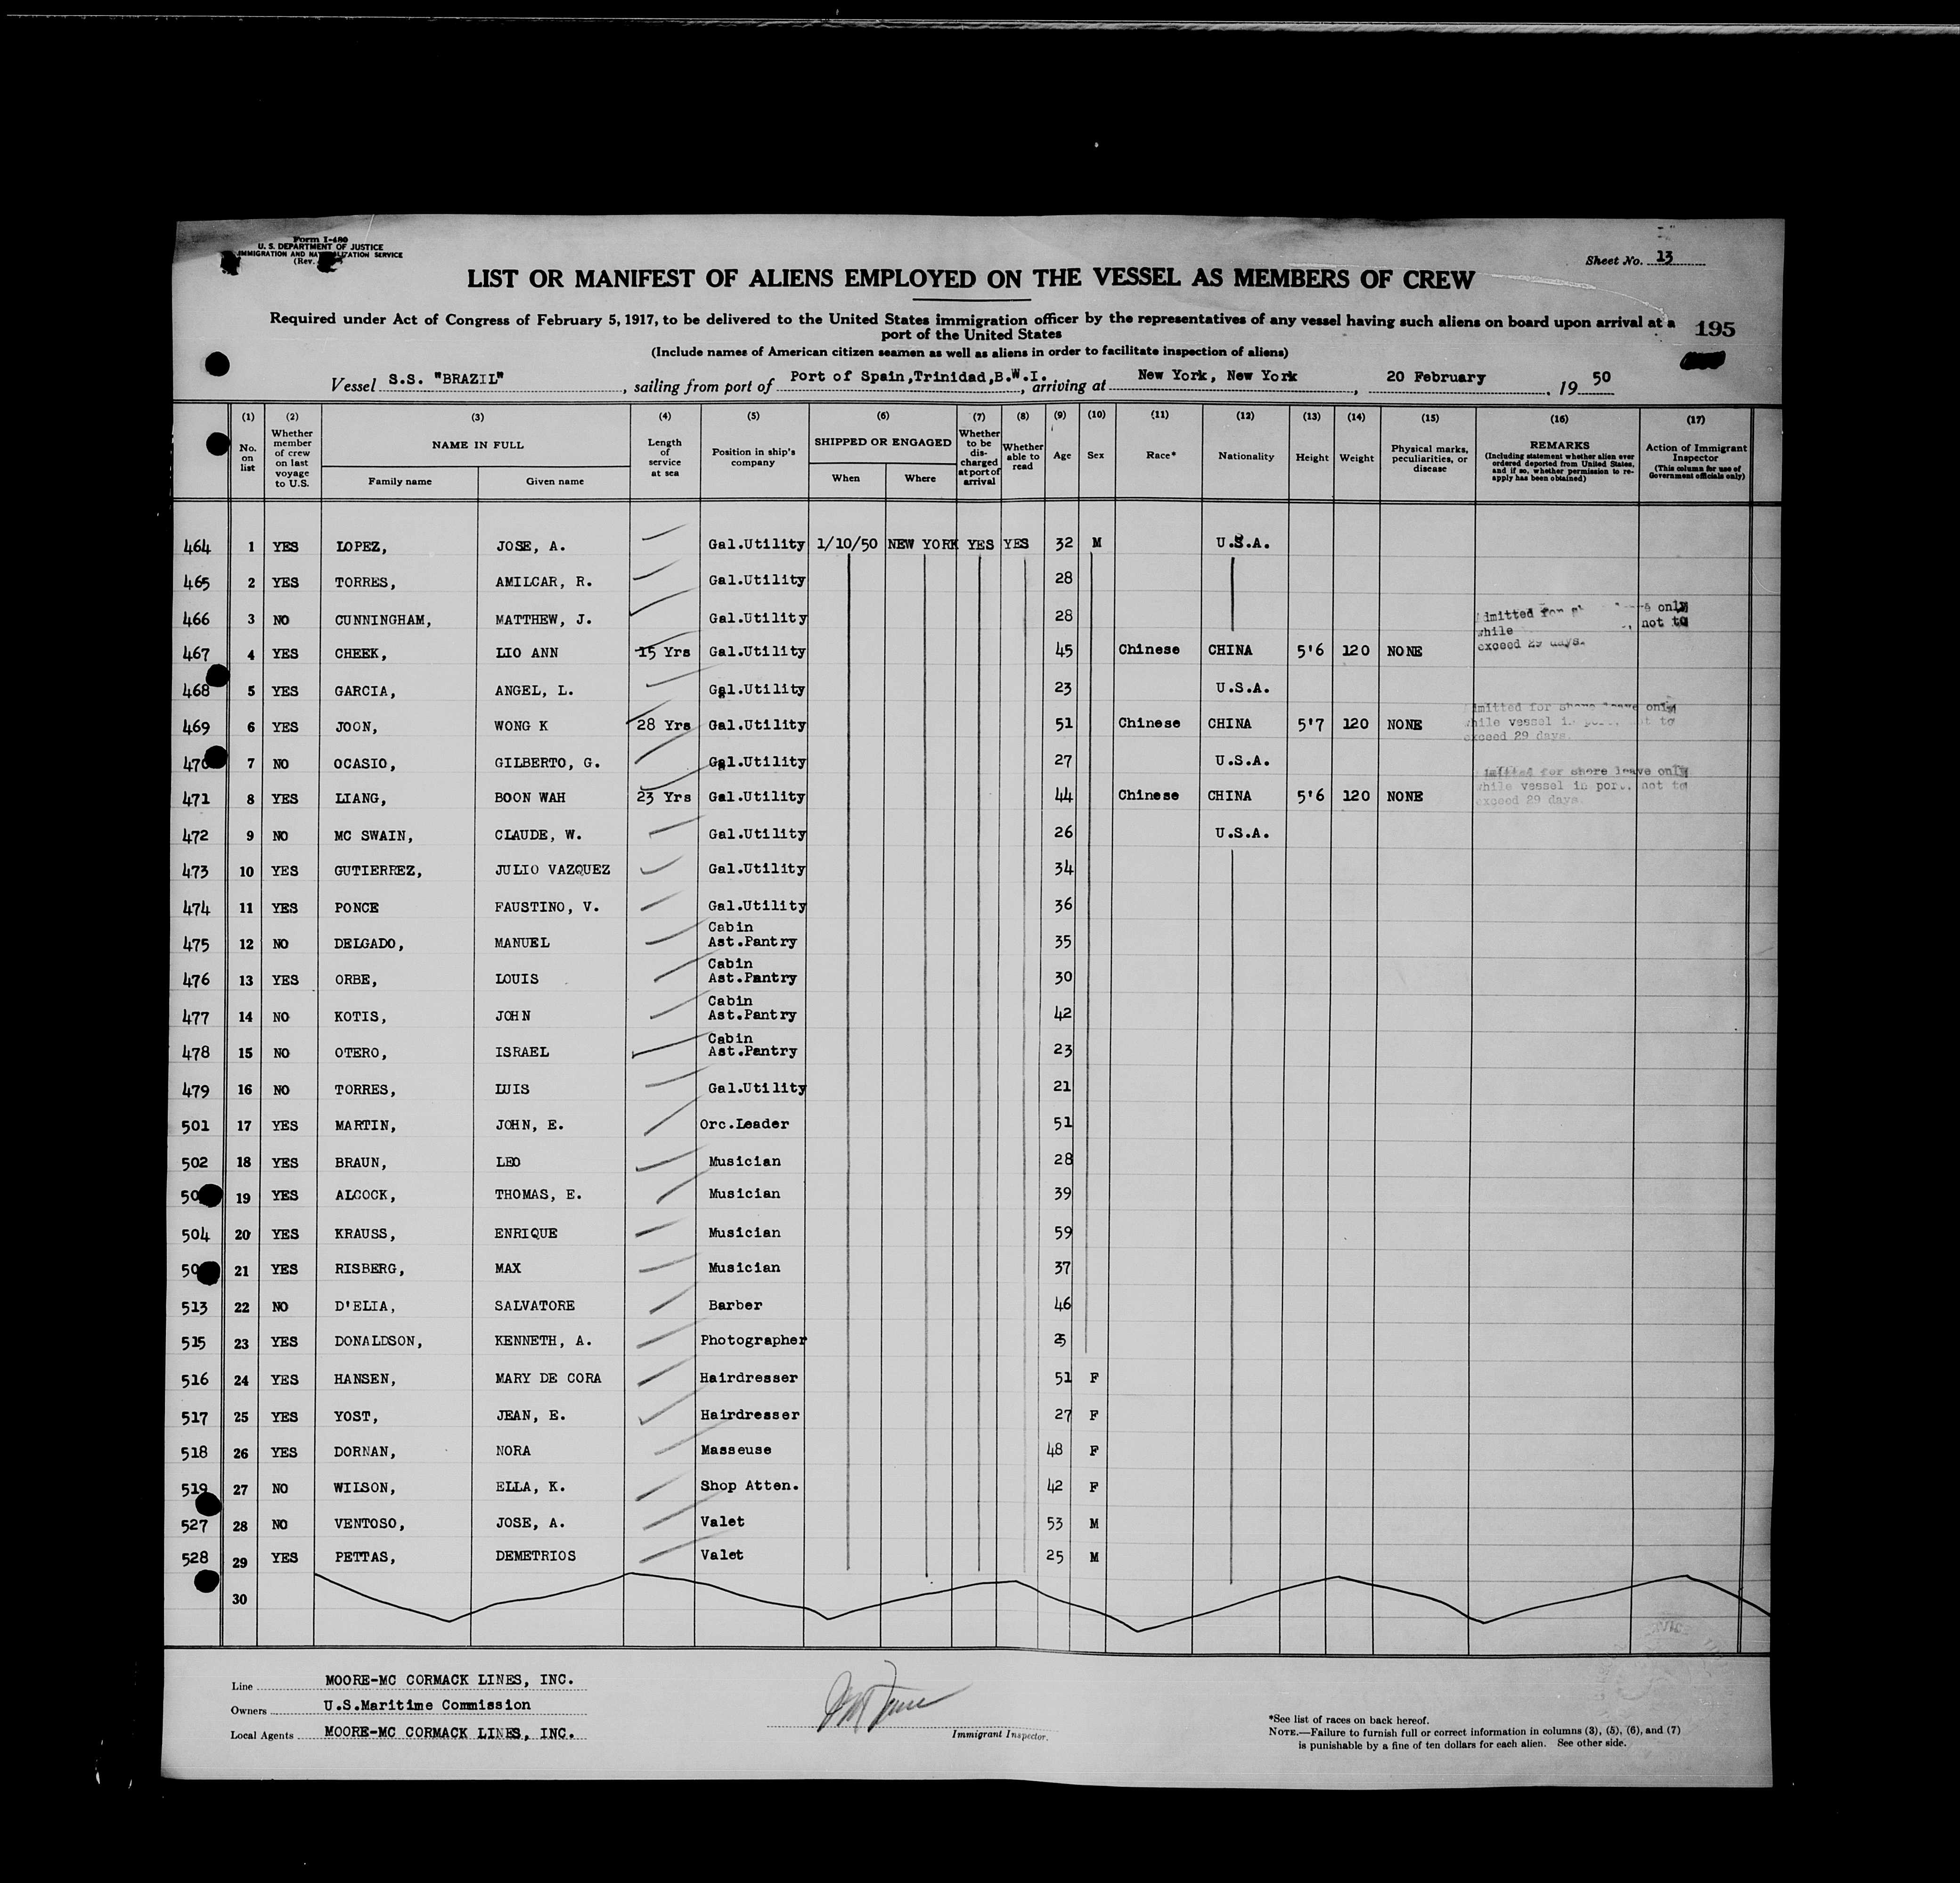 Form I-480
U. S. DEPARTMENT OF JUSTICE
IMMIGRATION AND NATURALIZATION SERVICE
(Rev.
Sheet No. 13
LIST OR MANIFEST OF ALIENS EMPLOYED ON THE VESSEL AS MEMBERS OF CREW
Required under Act of Congress of February 5, 1917, to be delivered to the United States immigration officer by the representatives of any vessel having such aliens on board upon arrival at a
port of the United States
195
(Include names of American citizen seamen as well as aliens in order to facilitate inspection of aliens)
Vessel S.S. "BRAZIL", sailing from port of Port of Spain,Trinidad,B.W.I., arriving at New York, New York, 20 February, 19 50
(1) (2) (3) (4) (5) (6) (7) (8) (9) (10) (11) (12) (13) (14) (15) (16) (17)
No. on list
Whether member of crew on last voyage to U.S.
NAME IN FULL
Family name
Given name
Length of service at sea
Position in ship's company
SHIPPED OR ENGAGED
When
Where
Whether to be discharged at port of arrival
Whether able to read
Age
Sex
Race*
Nationality
Height
Weight
Physical marks, peculiarities, or disease
REMARKS
(Including statement whether alien ever ordered deported from United States, and if so, whether permission to re-apply has been obtained)
Action of Immigrant Inspector
(This column for use of Government officials only)
464 1 YES LOPEZ, JOSE, A. Gal.Utility 1/10/50 NEW YORK YES YES 32 M U.S.A.
465 2 YES TORRES, AMILCAR, R. Gal.Utility 28
466 3 NO CUNNINGHAM, MATTHEW, J. Gal.Utility 28
467 4 YES CHEEK, LIO ANN 15 Yrs Gal.Utility 45 Chinese CHINA 5'6 120 NONE
only
while not to
exceed 29 days.
468 5 YES GARCIA, ANGEL, L. Gal.Utility 23 U.S.A.
469 6 YES JOON, WONG K 28 Yrs Gal.Utility 51 Chinese CHINA 5'7 120 NONE
for shore leave only
while vessel in not to
exceed 29 days.
470 7 NO OCASIO, GILBERTO, G. Gal.Utility 27 U.S.A.
471 8 YES LIANG, BOON WAH 23 Yrs Gal.Utility 44 Chinese CHINA 5'6 120 NONE
for shore leave only
while vessel in port, not to
exceed 29 days.
472 9 NO MC SWAIN, CLAUDE, W. Gal.Utility 26 U.S.A.
473 10 YES GUTIERREZ, JULIO VAZQUEZ Gal.Utility 34
474 11 YES PONCE FAUSTINO, V. Gal.Utility 36
475 12 NO DELGADO, MANUEL Cabin Ast.Pantry 35
476 13 YES ORBE, LOUIS Cabin Ast.Pantry 30
477 14 NO KOTIS, JOHN Cabin Ast.Pantry 42
478 15 NO OTERO, ISRAEL Cabin Ast.Pantry 23
479 16 NO TORRES, LUIS Gal.Utility 21
501 17 YES MARTIN, JOHN, E. Orc.Leader 51
502 18 YES BRAUN, LEO Musician 28
19 YES ALCOCK, THOMAS, E. Musician 39
504 20 YES KRAUSS, ENRIQUE Musician 59
21 YES RISBERG, MAX Musician 37
513 22 NO D'ELIA, SALVATORE Barber 46
515 23 YES DONALDSON, KENNETH, A. Photographer 25
516 24 YES HANSEN, MARY DE CORA Hairdresser 51 F
517 25 YES YOST, JEAN, E. Hairdresser 27 F
518 26 YES DORNAN, NORA Masseuse 48 F
519 27 NO WILSON, ELLA, K. Shop Atten. 42 F
527 28 NO VENTOSO, JOSE, A. Valet 53 M
528 29 YES PETTAS, DEMETRIOS Valet 25 M
30
Line MOORE-MC CORMACK LINES, INC.
Owners U.S.Maritime Commission
Local Agents MOORE-MC CORMACK LINES, INC.
Immigrant Inspector.
*See list of races on back hereof.
NOTE.—Failure to furnish full or correct information in columns (3), (5), (6), and (7)
is punishable by a fine of ten dollars for each alien. See other side.